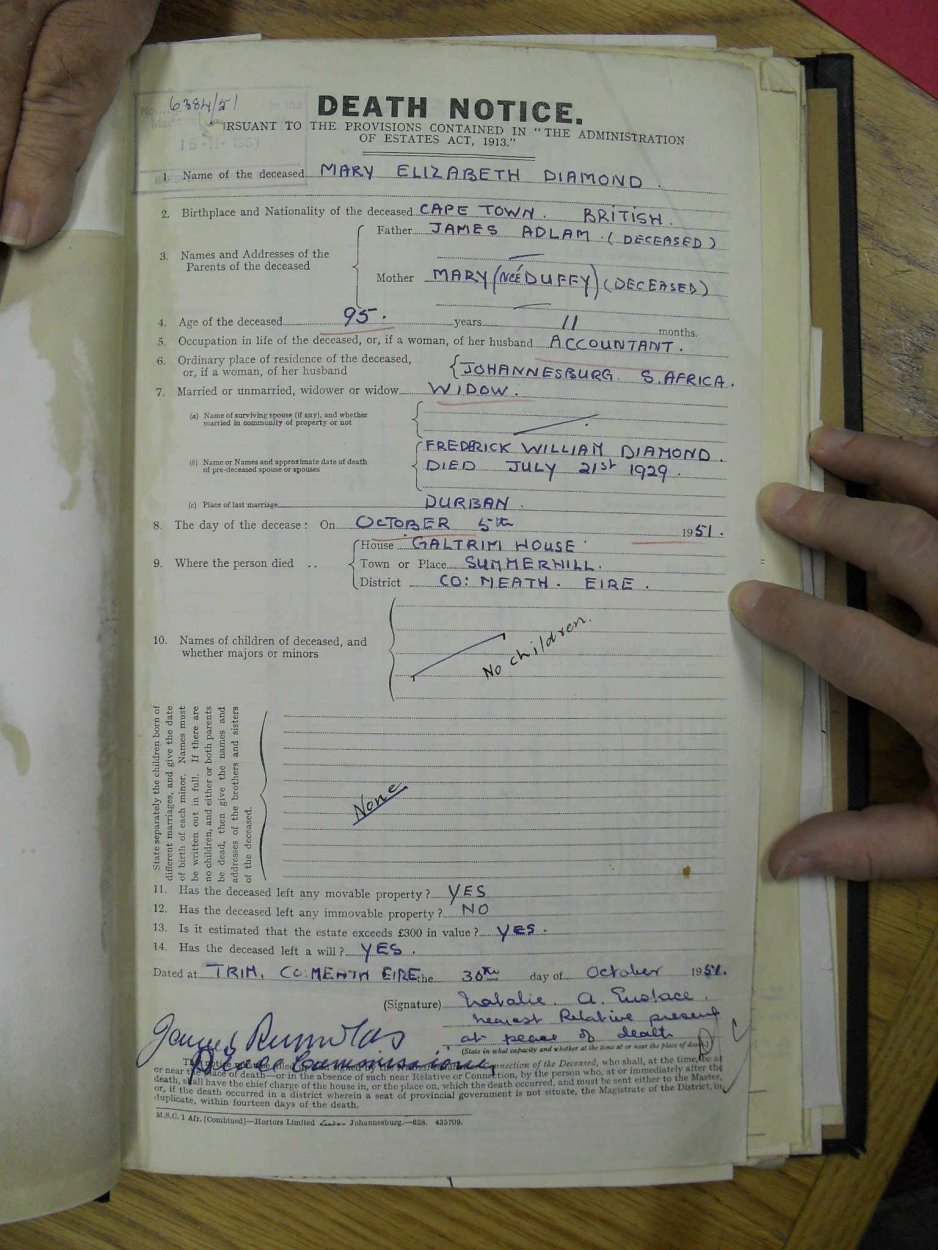 No. 6384/51 in the
15-11-1951
DEATH NOTICE.
PURSUANT TO THE PROVISIONS CONTAINED IN "THE ADMINISTRATION
OF ESTATES ACT, 1913."
1. Name of the deceased MARY ELIZABETH DIAMOND.
2. Birthplace and Nationality of the deceased CAPE TOWN. BRITISH.
3. Names and Addresses of the Parents of the deceased
Father JAMES ADLAM. (DECEASED)
Mother MARY (NÉE DUFFY) (DECEASED)
4. Age of the deceased 95. years 11 months.
5. Occupation in life of the deceased, or, if a woman, of her husband ACCOUNTANT.
6. Ordinary place of residence of the deceased,
or, if a woman, of her husband JOHANNESBURG. S. AFRICA.
7. Married or unmarried, widower or widow WIDOW.
(a) Name of surviving spouse (if any), and whether
married in community of property or not
(b) Name or Names and approximate date of death
of pre-deceased spouse or spouses
FREDERICK WILLIAM DIAMOND.
DIED JULY 21st 1929.
(c) Place of last marriage DURBAN.
8. The day of the decease: On OCTOBER 5th 1951.
9. Where the person died ..
House GALTRIM HOUSE
Town or Place SUMMERHILL.
District CO: MEATH. EIRE.
10. Names of children of deceased, and
whether majors or minors
No children.
State separately the children born of
different marriages, and give the date
of birth of each minor. Names must
be written out in full. If there are
no children, and either or both parents
be dead, then give the names and
addresses of the brothers and sisters
of the deceased.
None
11. Has the deceased left any movable property? YES
12. Has the deceased left any immovable property? NO
13. Is it estimated that the estate exceeds £300 in value? YES.
14. Has the deceased left a will? YES.
Dated at TRIM, CO: MEATH EIRE the 30th day of October 1951.
(Signature) Natalie A. Eustace.
nearest Relative present
at place of death
(State in what capacity and whether at the time at or near the place of death)
James
Commissioner
Connection of the Deceased, who shall, at the time, be at
or near the place of death—or in the absence of such near Relative or Connection, by the person who, at or immediately after the
death, shall have the chief charge of the house in, or the place on, which the death occurred, and must be sent either to the Master,
or, if the death occurred in a district wherein a seat of provincial government is not situate, the Magistrate of the District, in
duplicate, within fourteen days of the death.
M.S.C. 1 Afr. [Combined]—Hortors Limited Johannesburg.—628. 435709.